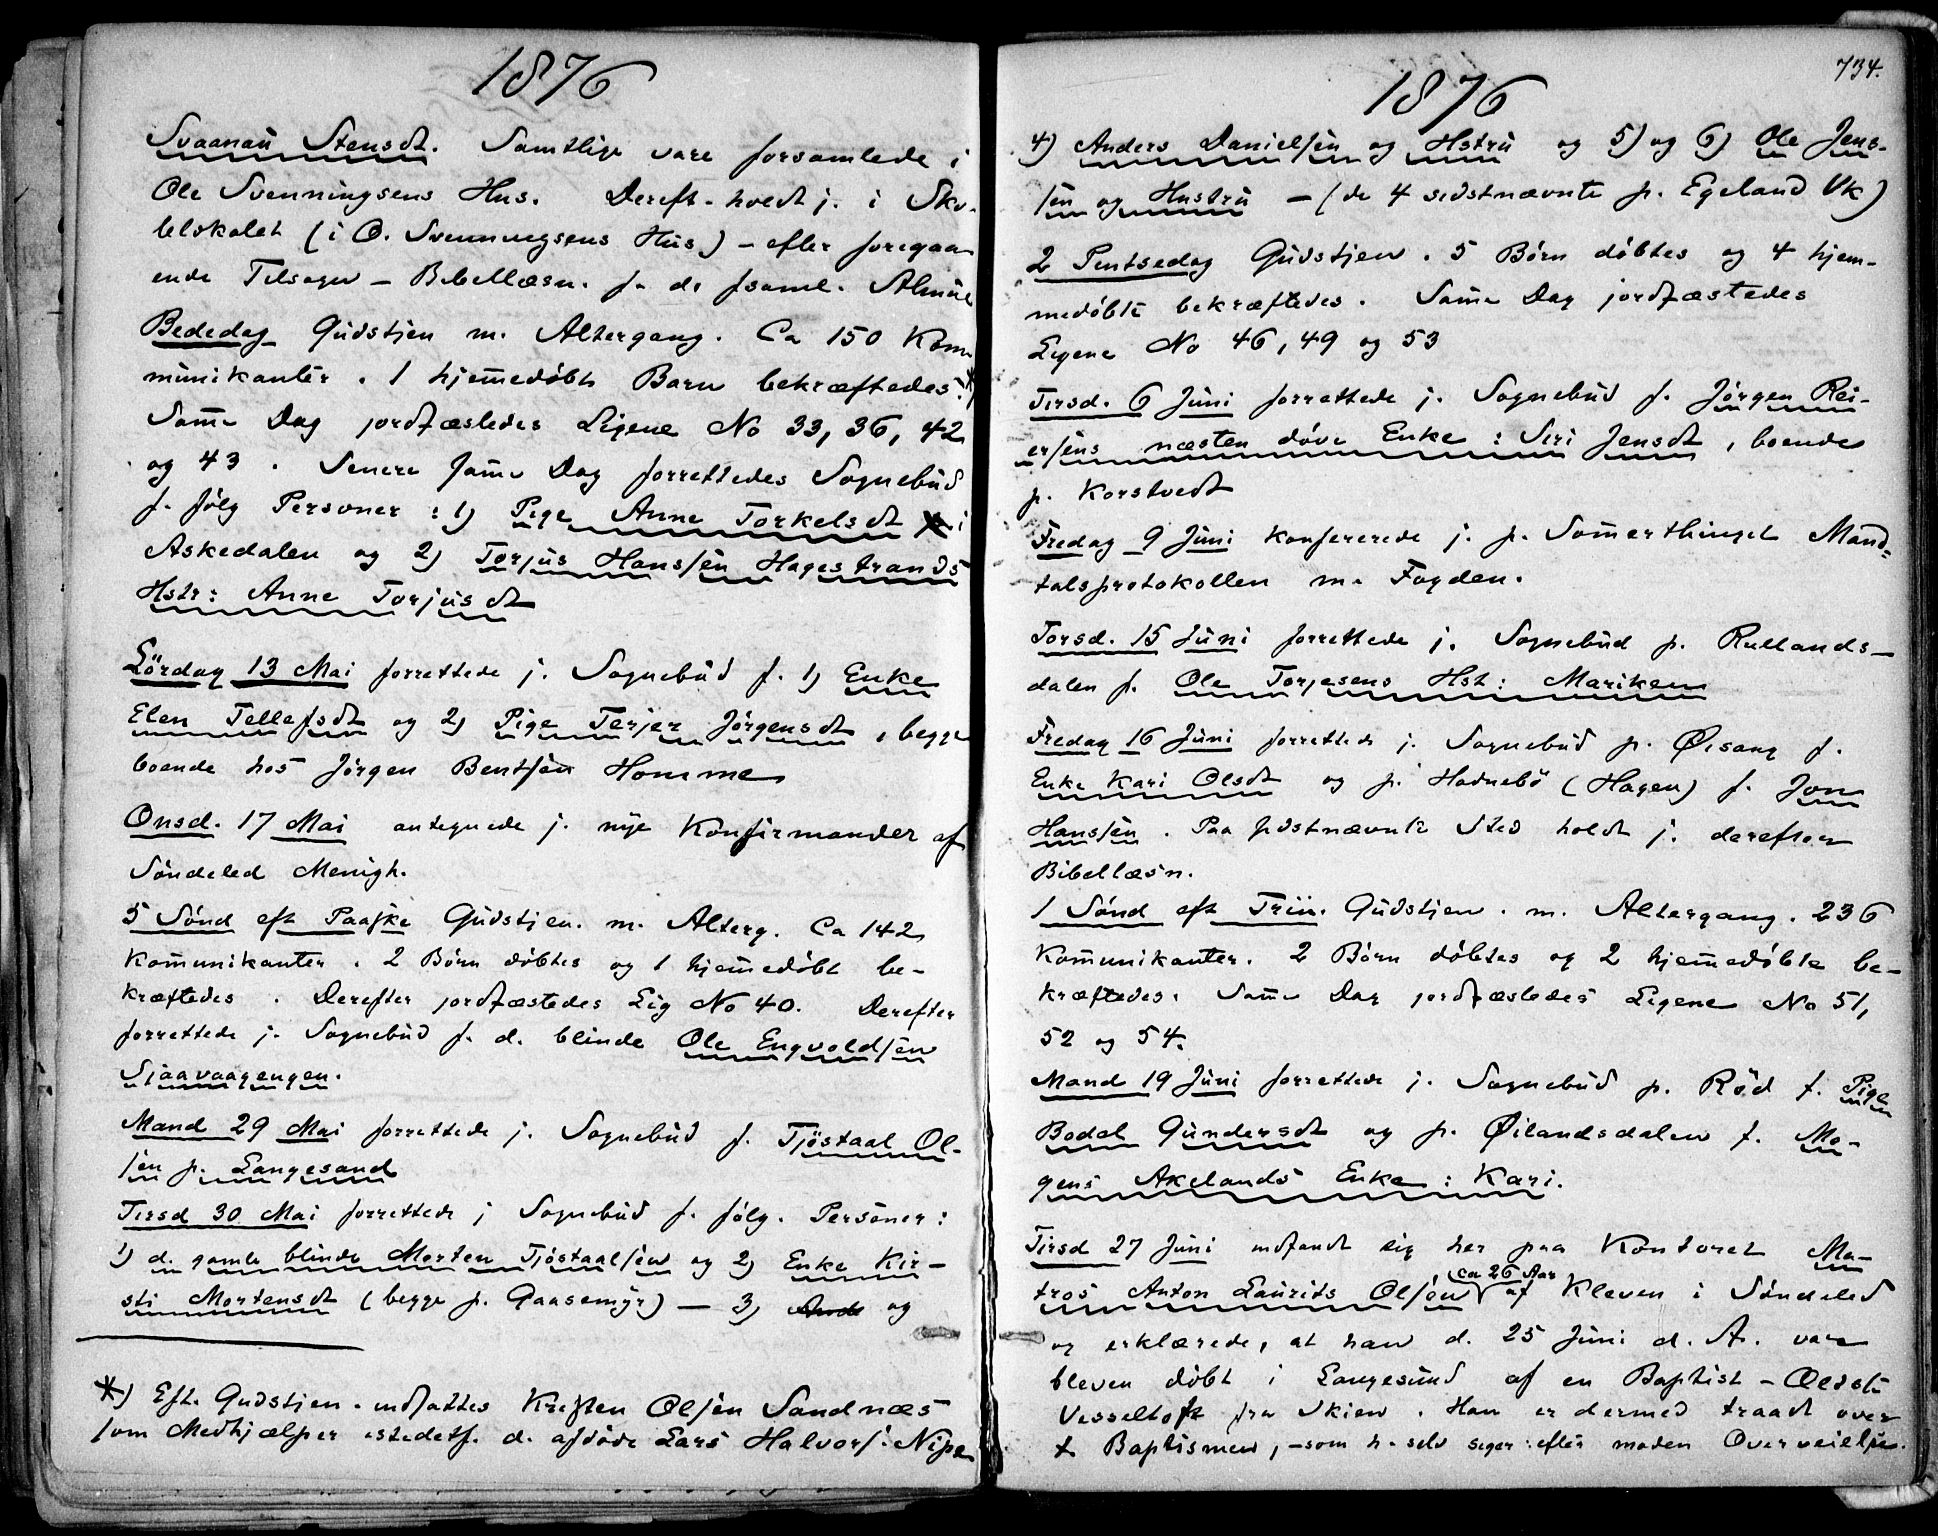 1876
Svaanaü Stensdt. Samtlige vare forsamlede i
Ole Svenningsens Hus. Dereft. holdt j. i Sko-
lelokalet (i O. Svenningsens Hüs) – efter foregaa-
ende Tilsagn – Bibellæsn. f. d. fsaml. Almüe
Bededag Güdstjen m. Altergang. Ca 150 Kom-
münikanter. 1 hjem̅edøbt Barn bekræftedes. *)
Sam̅e Dag jordfæstedes Ligene No 33, 36, 42
og 43. Senere sam̅e Dag forrettedes Sognebüd
f. følg Personer: 1) Pige Anne Torkelsdt i
Askedalen og 2) Torjüs Hanssen Hagestrands
Hstr: Anne Torjüsdt
Lördag 13 Mai forrettede j. Sognebüd f. 1) Enke
Elen Tellefsdt og 2) Pige Terjer Jörgensdt, begge
boende hos Jörgen Bentsen Homme
Onsd. 17 Mai antegnede j. nye Konfirmander af
Söndeled Menigh.
5 Sönd eft Paaske Güdstjen. m. Alterg. Ca 142
Kom̅unikanter. 2 Börn döbtes og 1 hjem̅edöbt be-
kræftedes. Derefter jordfæstedes Lig No 40. Derefter
forrettede j. Sognebüd f. d. blinde Ole Engvoldsen
Sjaavaagengen.
Mand 29 Mai forrettede j. Sognebüd f. Tjöstaal Ol-
sen p. Langesand
Tirsd 30 Mai forrettede j Sognebüd f. fölg. Personer:
1) d. gamle blinde Morten Tjöstaalsen og 2) Enke Kir-
sti Mortensdt (begge p. Gaasemÿr) – 3) og
*) Eft. Gudstjen. indsattes Kristen Olsen Sandnæs
som Medhjælper istedetf. d. afdöde Lars Halvors: Nipe
734.
1876
4) Anders Danielsen og Hstrü og 5) og 6) Ole Jens-
sen og Hustrü – (de 4 sidstnævnte p. Egeland Vk)
2 Pintsedag Güdstjen. 5 Börn döbtes og 4 hjem-
medöbte bekræftedes. Sam̅e Dag jordfæstedes
Ligene No 46, 49 og 53
Tirsd. 6 Jüni forrettede j. Sognebüd f. Jørgen Rei-
ersens næsten døve Enke: Siri Jensdt, boende
p. Korstvedt
Fredag 9 Jüni konfererede j. p. Som̅erthinget Mand-
talsprotokollen m. Fogden.
Torsd. 15 Jüni forrettede j. Sognebüd p. Rullands-
dalen f. Ole Torjesens Hst: Mariken
Fredag 16 Jüni forrettede j. Sognebüd p. Øisang f.
Enke Kari Olsdt og p. Hødnebö (Hagen) f. Jon
Hanssen. Paa sidstnævnte Sted holdt j. derefter
Bibellæsn.
1 Sönd eft Trin. Güdstjen. m. Altergang. 236
Kom̅unikanter. 2 Börn döbtes og 2 hjem̅edöbte be-
kræftedes. Sam̅e Dag jordfæstedes Ligene No 51,
52 og 54.
Mand 19 Jüni forrettede j. Sognebüd p. Röd f. Pige
Bodel Gündersdt og p. Øilandsdalen f. Mo-
gens Akelands Enke: Kari.
Tirsd 27 Jüni indfandt sig her paa Kontoret Ma-
ca 26 Aar
tros Anton Laürits Olsen af Kleven i Söndeled
og erklærede, at han d. 25 Jüni d. A. var
bleven döbt i Langesünd af en Baptist-Oldste
Vesseltoft fra Skien. Han er dermed traadt over
t. Baptismen, – som h. selv siger: efter moden Overveielse.